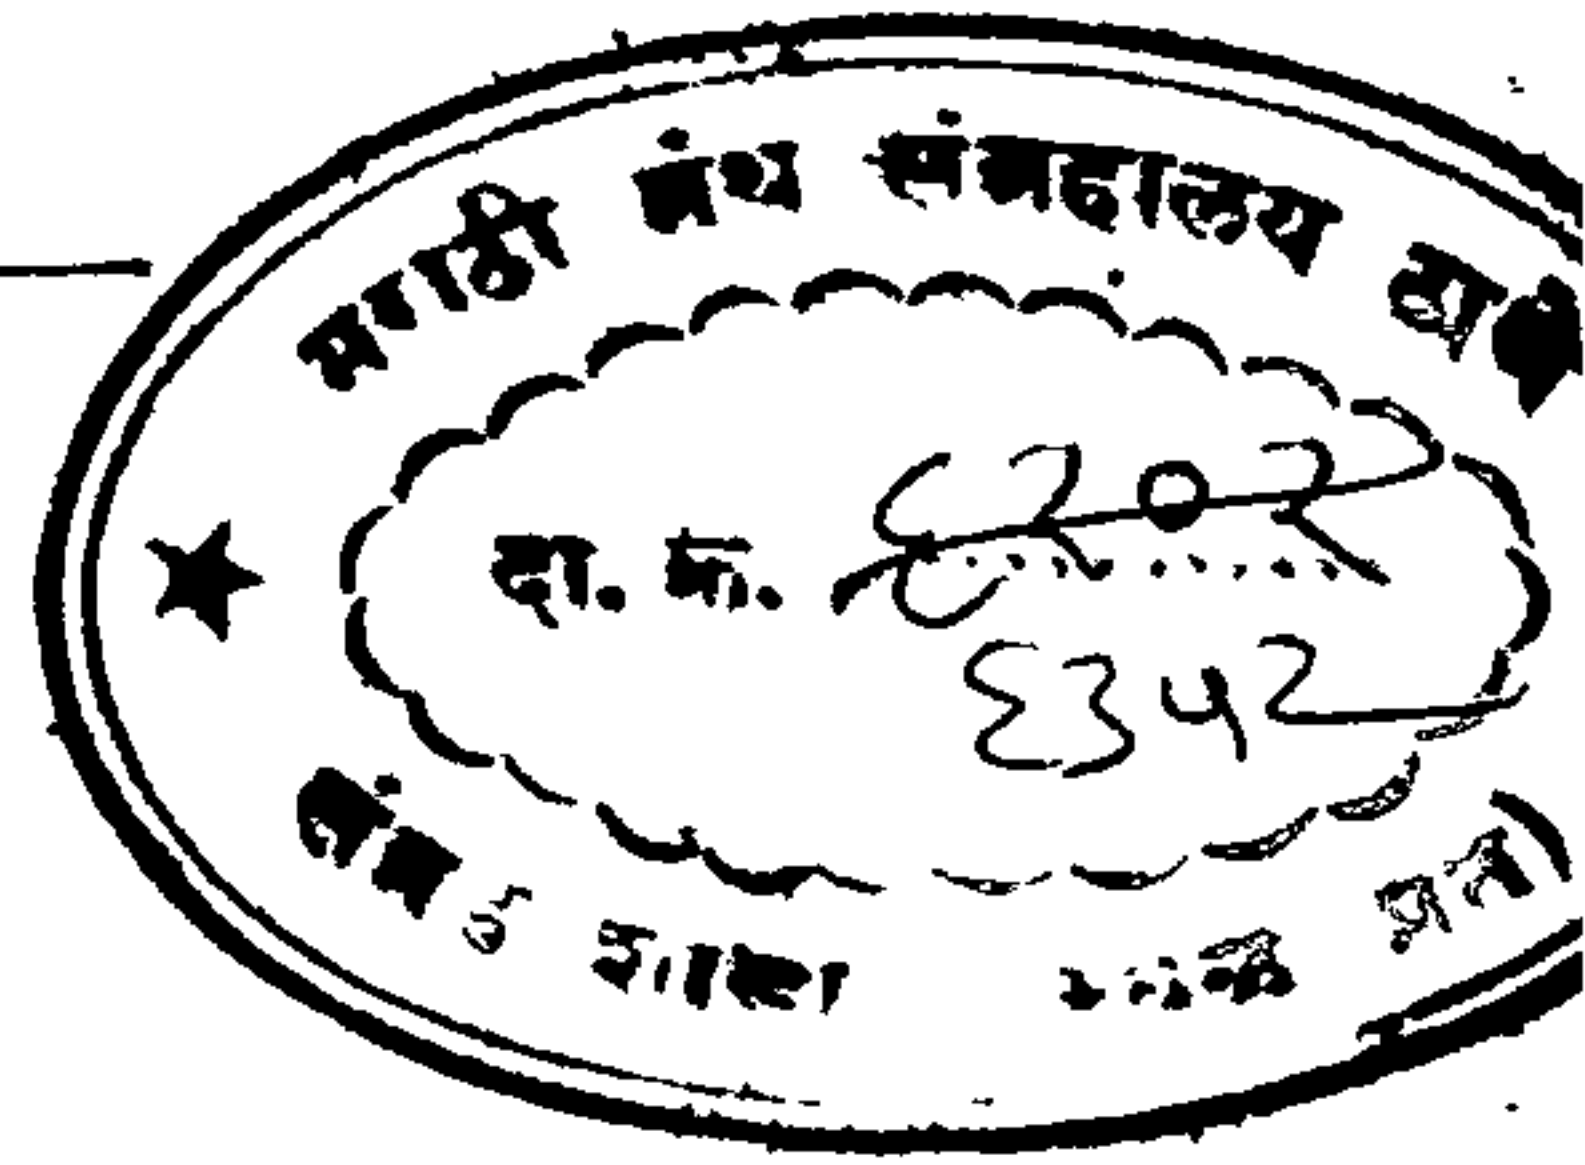 मराठी ग्रंथ संग्रहालय ठाणे
दा. क्र. ८२०२
६३५२
शाखा
प्रत)